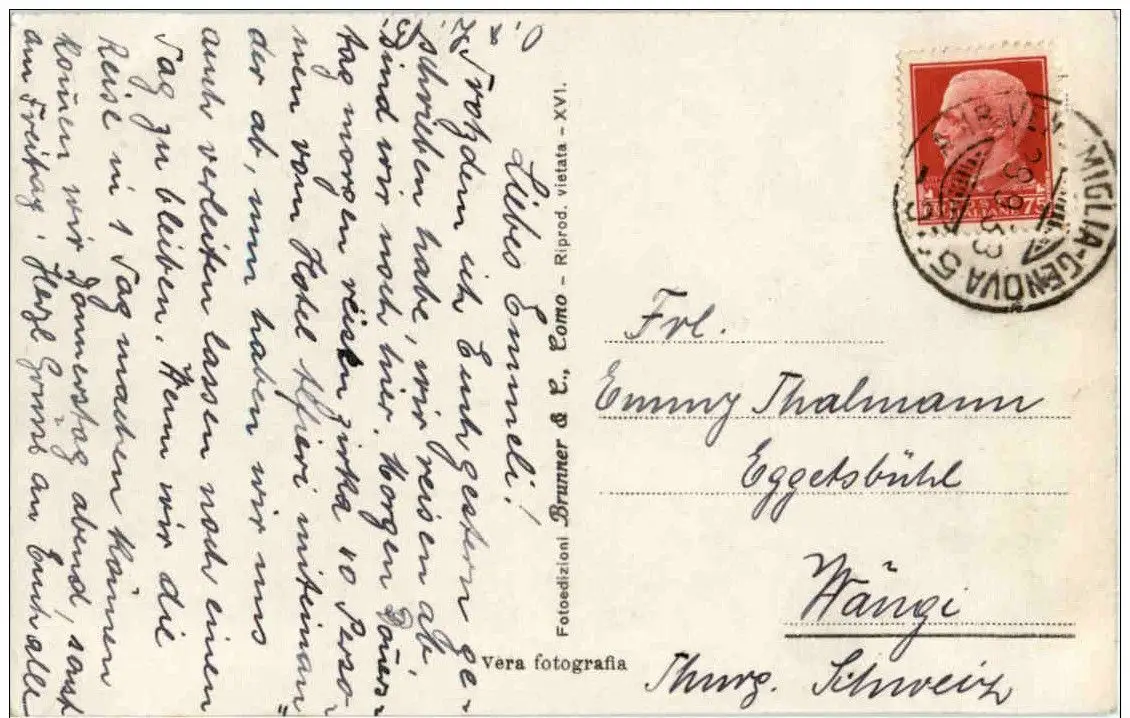 Liebes Emmeli!
Trotzdem ich Euch gestern ge-
schrieben habe, wir reisen ab
Sind wir noch hier. Morgen Donners-
tag morgen reisen zirka 10 Perso-
nen vom Hotel Alfieri miteinan-
der ab, nun haben wir uns
auch verleiten lassen noch einen
Tag zu bleiben. Wenn wir die
Reise in 1 Tag machen können
kommen wir Donnerstag abend, sonst
am Freitag. Herzl Grüsse an Euch alle
Fotoedizioni Brunner & C., Como - Riprod. vietata - XVI.
Vera fotografia
MIGLIA-GENOVA 5
75
Frl.
Emmy Thalmann
Eggetsbühl
Wängi
Thurg. Schweiz